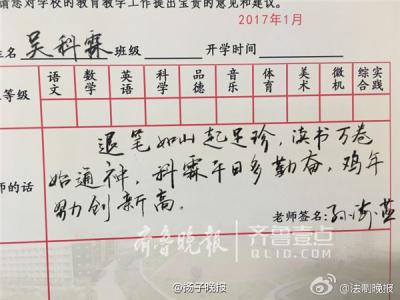 请您对学校的教育教学工作提出宝贵的意见和建议。
2017年1月
姓名 吴科霖 班级 开学时间
等级 语文 数学 英语 科学 品德 音乐 体育 美术 微机 综合实践
师的话
退笔如山起足珍，读书万卷
始通神，科霖平日多勤奋，鸡年
努力创新高。
老师签名：孙
齐鲁晚报 齐鲁壹点
QLID.COM
@扬子晚报
@法制晚报